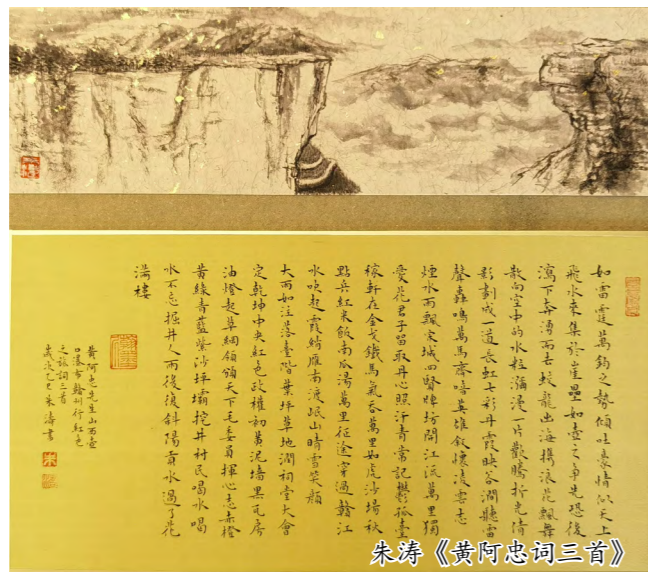 如雷霆萬鈞之勢傾吐豪情似天上
飛水来集於崖如壺之争先恐後
瀉下奔湧而去蛟龍出海携浪花飄舞
散向空中的水粒瀰漫一片歡騰折光清
影劃成一道長虹七彩丹霞映谷澗聽雷
聲轟鳴萬馬齊嘻英雄敘懷凌雲志
煙水雨飄宋城四賢牌坊閣江流萬里獨
愛花君子留取丹心照汗青常記鬱孤臺
稼軒在金戈鐵馬氣吞萬里如虎沙場秋
點兵紅米飯南瓜湯萬里征途穿過赣江
水吹起霞雁南渡岷山晴雪笑顏
大雨如注落臺階葉坪草地潤祠堂大會
定乾坤中央紅色政權初黃泥墻黑瓦房
油燈起草綱領頒天下毛委員揮心志赤橙
黃綠青藍紫沙坪壩挖井村民喝水喝
水不忘掘井人雨後復斜陽貢水過了花
滿樓
黃阿忠先生山西壺
口瀑布贛州行紅色
之旅詞三首
歲次乙巳朱濤書
朱涛《黄阿忠词三首》